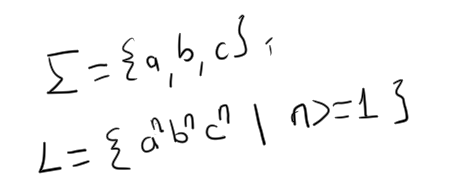 Σ={a,b,c},
L={aⁿbⁿcⁿ | n>=1}